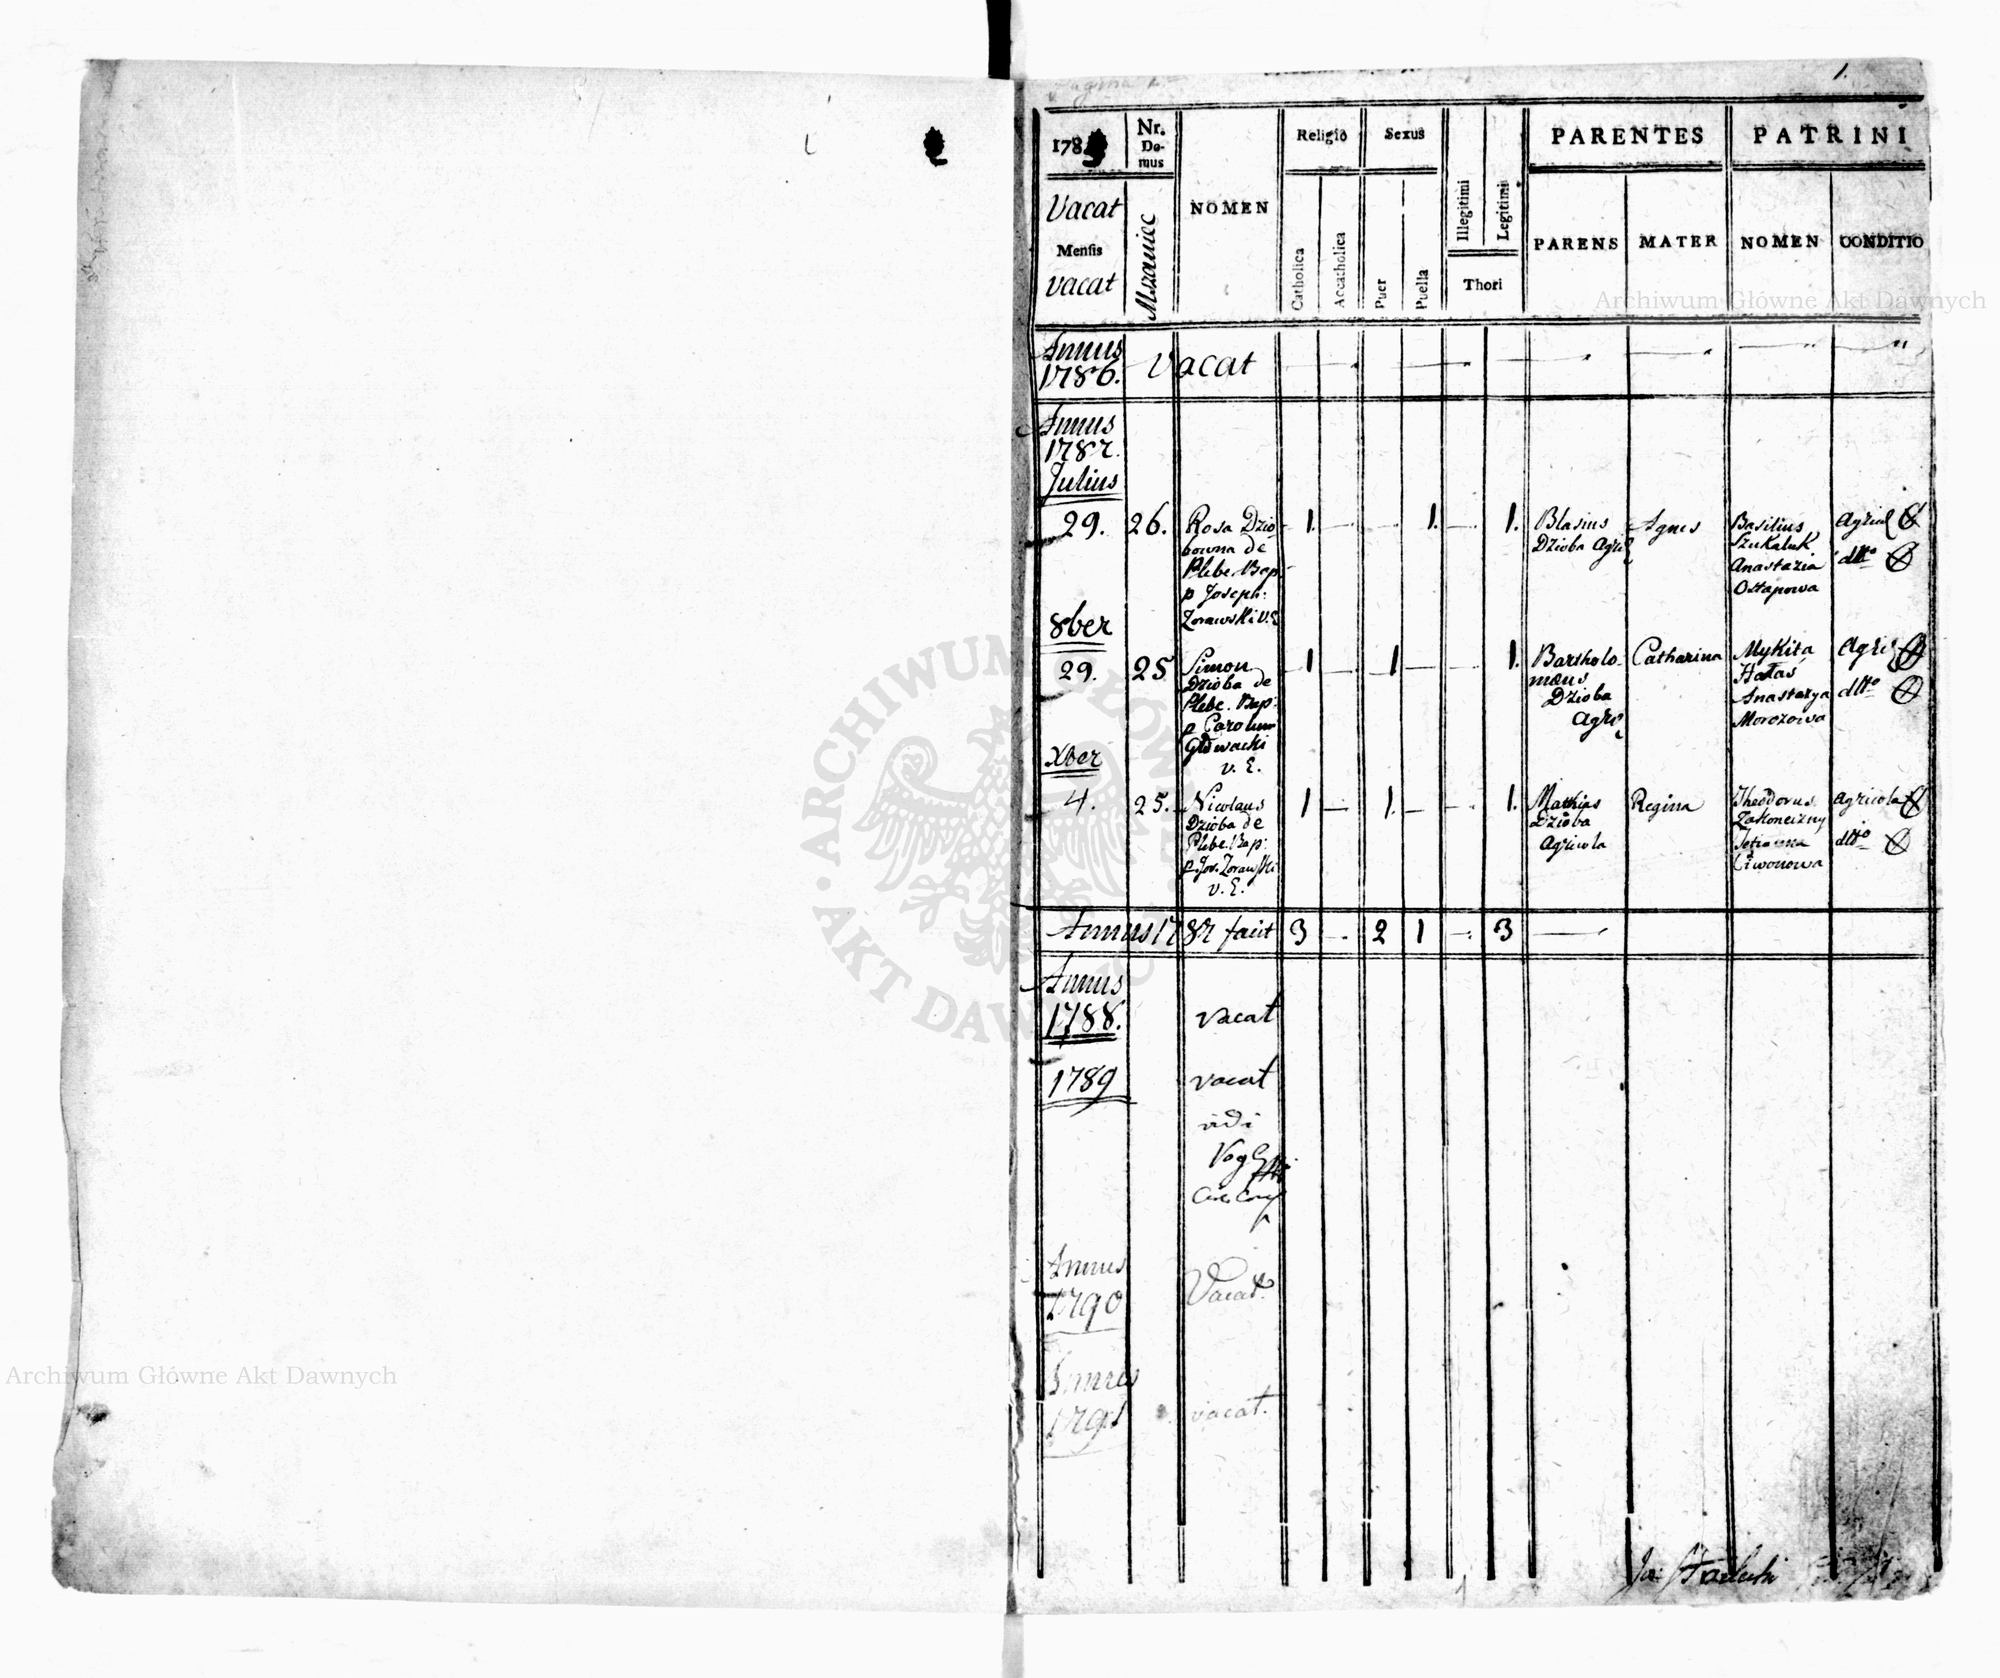 Pagina 1
1.
178
Nr. Do- mus
NOMEN
Religio
Sexus
Illegitimi
Legitimi
Thori
PARENTES
PATRINI
Vacat
Mensis
vacat
Mszaniec
Catholica
Accatholica
Puer
Puella
PARENS
MATER
NOMEN
CONDITIO
Archiwum Główne Akt Dawnych
Annus
1786. Vacat
Annus
1787.
Julius
29. 26. Rosa Dzio- 1. 1. 1. Blasius Agnes Basilius Agricol
bowna de Dzioba Agric Szukaluk
Plebe. Bap: Anastazia dtto
p Joseph: Ostapowa
Zorawski V. E
8ber
29. 25 Simon 1 1 1. Bartholo- Catharina Mykita Agric
Dzioba de mæus Hałas
Plebe. Bap: Dzioba Anastazya dtto
p Carolum Agric Morozowa
Głowacki
V. E.
Xber
4. 25. Nicolaus 1 1. 1. Mathias Regina Theodorus Agricola
Dzioba de Dzioba Zakoneczny
Plebe. Bap: Agricola dtto
p. Jos. Zorawski Iwonowa
V. E.
Annus 1787 facit 3 2 1 3
Annus
1788. vacat
1789 vacat
vidi
Annus
1790 Vacat.
Annus
1791 vacat.
ARCHIWUM GŁÓWNE AKT DAWNYCH
Archiwum Główne Akt Dawnych